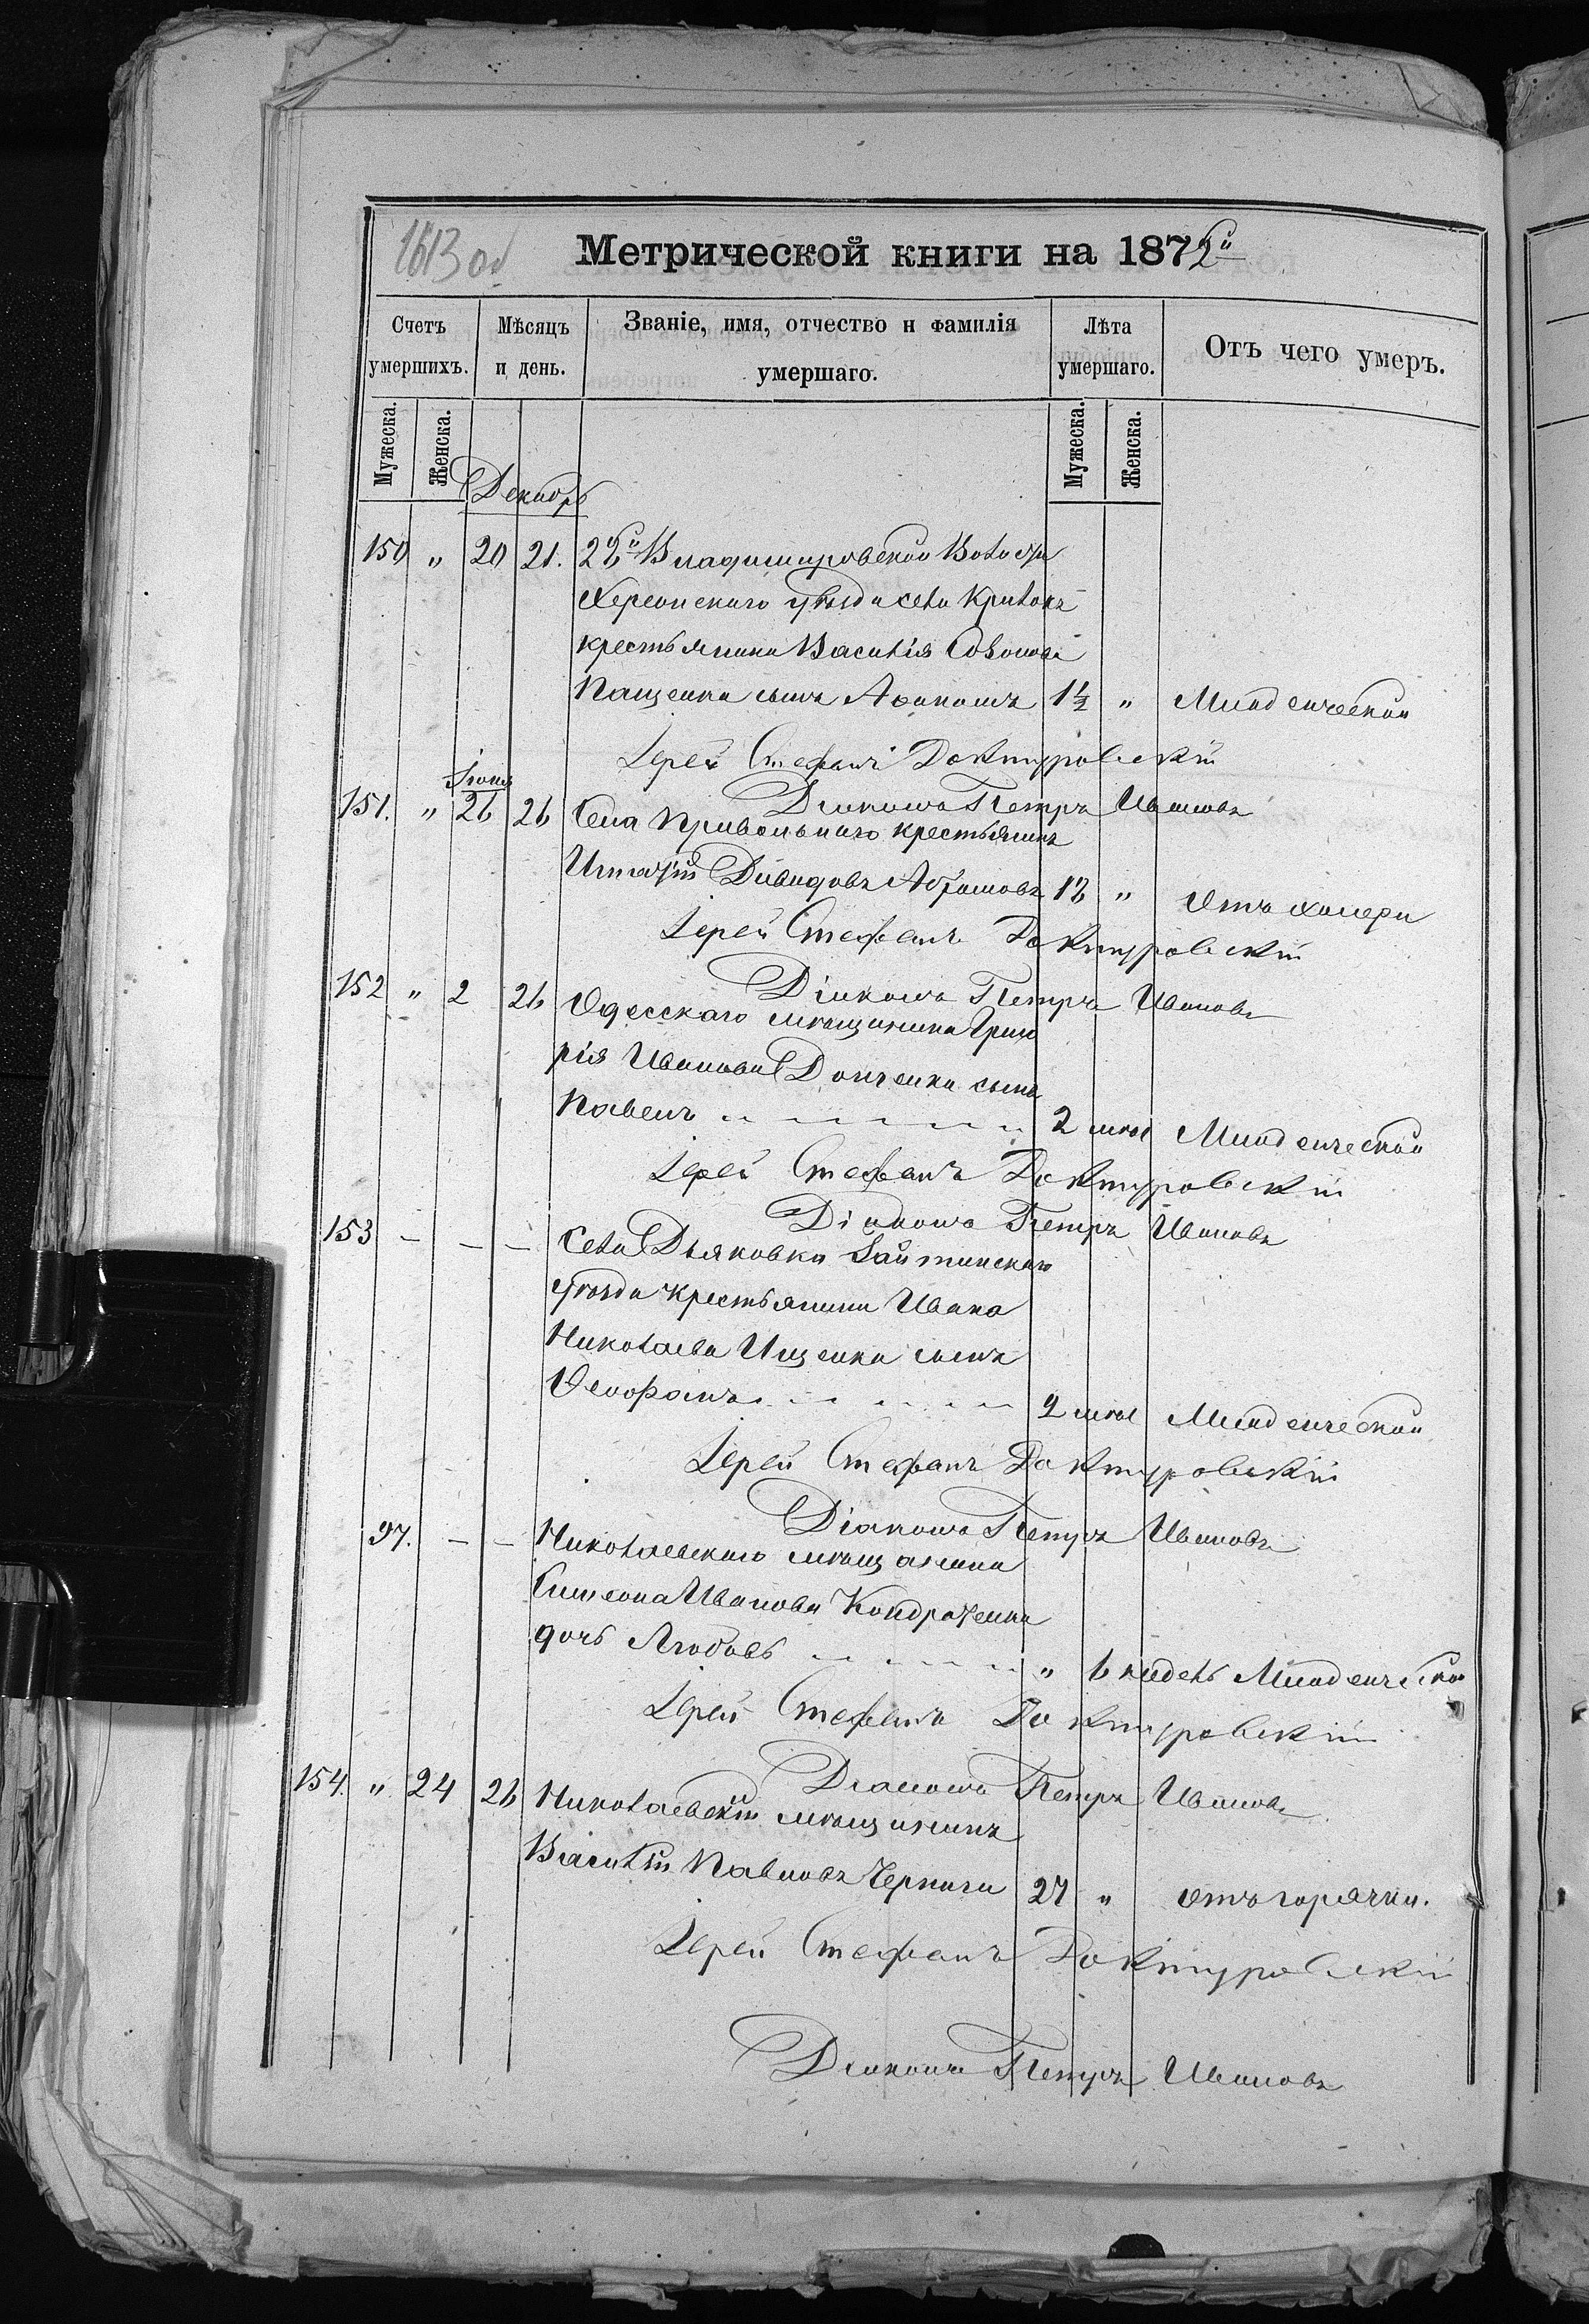 1613 об
Метрической книги на 1872й
Счетъ умершихъ.
Мѣсяцъ и день.
Званіе, имя, отчество и фамилія умершаго.
Лѣта умершаго.
Отъ чего умеръ.
Мужеска.
Женска.
Мужеска.
Женска.
Декабрь
150 " 20 21. 2й Владимировской Волости
Херсонскаго уѣзда села
крестьянина Василія
Пащенка сынъ 1½ " Младенческой
Іерей Стефанъ Доктуровскій
Діаконъ Петръ Ивановъ
Іюня
151. " 26 26 Села Привольнаго крестьянинъ
Игнатій Давидовъ Абрамовъ 12 " Отъ холеры
Іерей Стефанъ Доктуровскій
Діаконъ Петръ Ивановъ
152 " 2 26 Одесскаго мѣщанина Григо
рія Иванова Донченка сынъ
Павелъ 2 мѣс Младенческой
Іерей Стефанъ Доктуровскій
Діаконъ Петръ Ивановъ
153 - - - Села Дьяковки Гайсинскаго
уѣзда крестьянина Ивана
Николаева Ищенка сынъ
Феофанъ 2 мѣс Младенческой
Іерей Стефанъ Доктуровскій
Діаконъ Петръ Ивановъ
97. - - Николаевскаго мѣщанина
Симеона Иванова Кондратенка
дочь Любовь " 6 недѣль Младенческой
Іерей Стефанъ Доктуровскій
Діаконъ Петръ Ивановъ
154 " 24 26 Николаевскій мѣщанинъ
Василій Павловъ 27 " отъ горячки.
Іерей Стефанъ Доктуровскій
Діаконъ Петръ Ивановъ